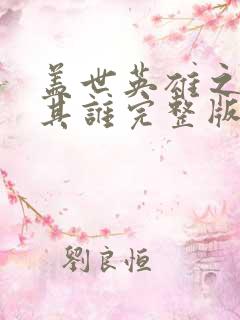 盖世英雄之
其誰完整版
劉良恒